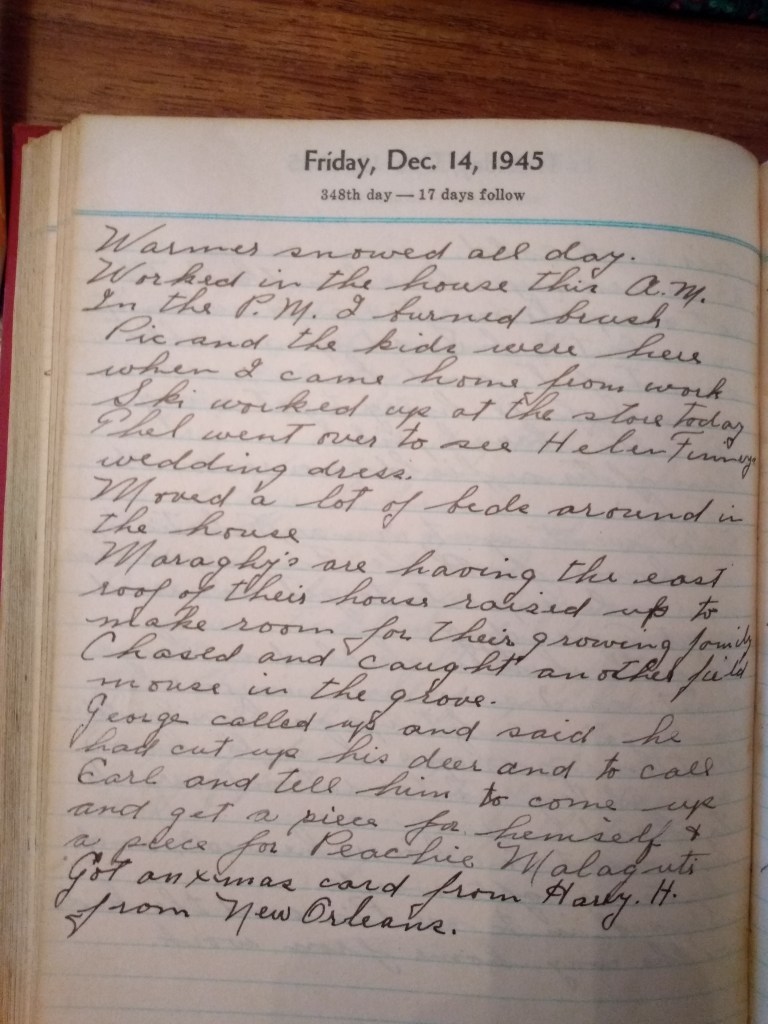 Friday, Dec. 14, 1945
348th day — 17 days follow
Warmer snowed all day.
Worked in the house this A.M.
In the P.M. I burned brush
Pic and the kids were here
when I came home from work
Ski worked up at the store today
Ethel went over to see Helen Finneys
wedding dress.
Moved a lot of beds around in
the house
Maraghy's are having the east
roof of their house raised up to
make room for their growing family
Chased and caught another field
mouse in the grove.
George called up and said he
had cut up his deer and to call
Earl and tell him to come up
and get a piece for hemself &
a piece for Peachie Malaguti
Got an xmas card from Harry. H.
from New Orleans.